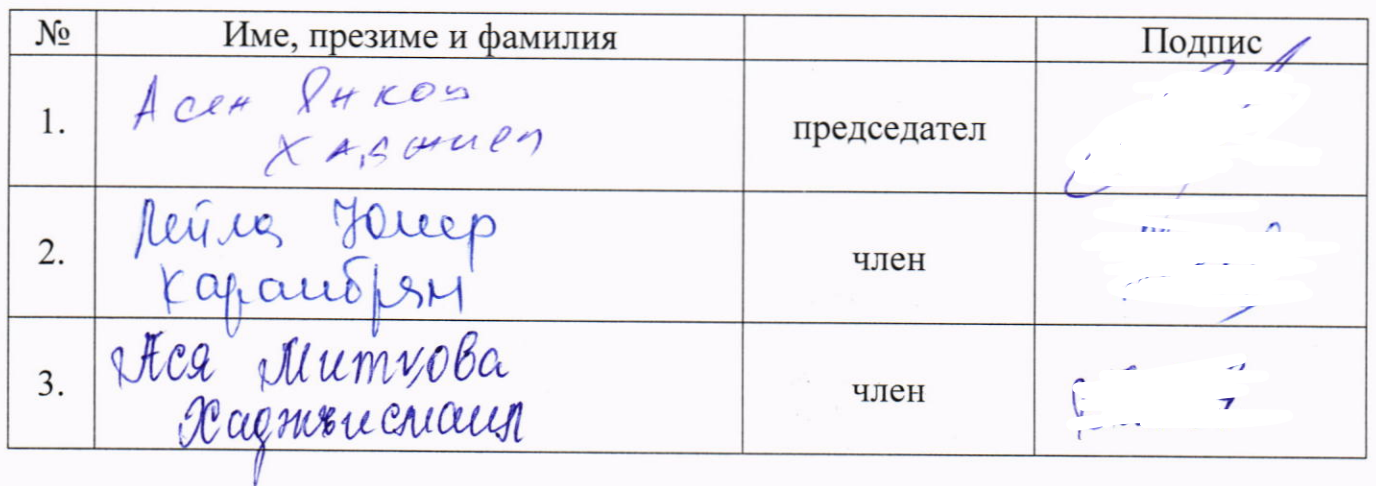 № Име, презиме и фамилия Подпис
1. Асен Янков
Хаджиев
председател
2. Лейла Юмер
Караибрям
член
3. Ася Миткова
Хаджъисмаил
член